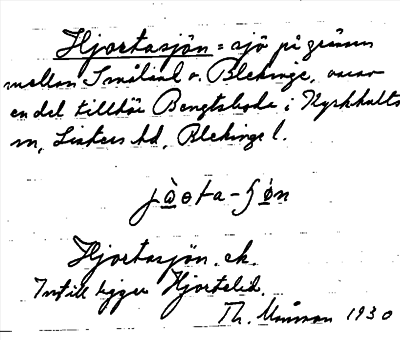 Hjortasjön = sjö på gränsen
mellan Småland o. Blekinge, varav
en del tillhör Bengtsboda i Kyrkhults
sn, Listers hd, Blekinge l.
jòɵta-ʃø̀n
Hjortasjön. ek.
Intill ligger Hjorteled.
Th. Månsson 1930